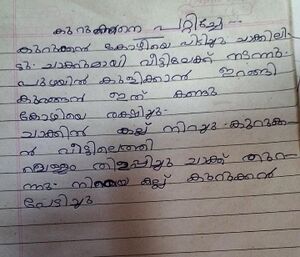 കുറുക്കനെ പറ്റിച്ചേ -
കുറുക്കൻ കോഴിയെ പിടിച്ചു ചാക്കിലി
ട്ടു. ചാക്കുമായി വീട്ടിലേക്ക് നടന്നു.
പുഴയിൽ കുളിക്കാൻ ഇറങ്ങി
കുരങ്ങൻ ഇത് കണ്ടു
കോഴിയെ രക്ഷിച്ചു.
ചാക്കിൻ കല്ല് നിറച്ചു. കുറുക്ക
ൻ വീട്ടിലെത്തി
വെള്ളം തിളപ്പിച്ചു ചാക്ക് തുറ
ന്നു. നിറയെ കല്ല് കുറുക്കൻ
പേടിച്ചു